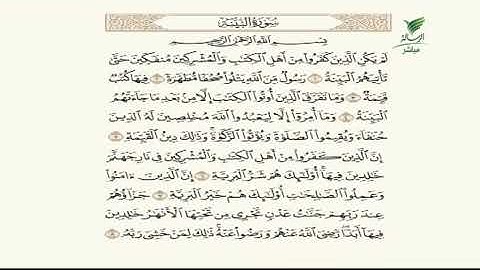 الرسالة
مباشر
سورة البينة
بسم الله الرحمن الرحيم
لَمْ يَكُنِ الَّذِينَ كَفَرُوا مِنْ أَهْلِ الْكِتَابِ وَالْمُشْرِكِينَ مُنفَكِّينَ حَتَّى
تَأْتِيَهُمُ الْبَيِّنَةُ ١ رَسُولٌ مِّنَ اللَّهِ يَتْلُوا صُحُفًا مُّطَهَّرَةً ٢ فِيهَا كُتُبٌ
قَيِّمَةٌ ٣ وَمَا تَفَرَّقَ الَّذِينَ أُوتُوا الْكِتَابَ إِلَّا مِنْ بَعْدِ مَا جَاءَتْهُمُ
الْبَيِّنَةُ ٤ وَمَا أُمِرُوا إِلَّا لِيَعْبُدُوا اللَّهَ مُخْلِصِينَ لَهُ الدِّينَ
حُنَفَاءَ وَيُقِيمُوا الصَّلَاةَ وَيُؤْتُوا الزَّكَاةَ وَذَلِكَ دِينُ الْقَيِّمَةِ ٥
إِنَّ الَّذِينَ كَفَرُوا مِنْ أَهْلِ الْكِتَابِ وَالْمُشْرِكِينَ فِي نَارِ جَهَنَّمَ
خَالِدِينَ فِيهَا أُولَئِكَ هُمْ شَرُّ الْبَرِيَّةِ ٦ إِنَّ الَّذِينَ ءَامَنُوا
وَعَمِلُوا الصَّالِحَاتِ أُولَئِكَ هُمْ خَيْرُ الْبَرِيَّةِ ٧ جَزَاؤُهُمْ
عِندَ رَبِّهِمْ جَنَّاتُ عَدْنٍ تَجْرِي مِن تَحْتِهَا الْأَنْهَارُ خَالِدِينَ
فِيهَا أَبَدًا رَّضِيَ اللَّهُ عَنْهُمْ وَرَضُوا عَنْهُ ذَلِكَ لِمَنْ خَشِيَ رَبَّهُ ٨